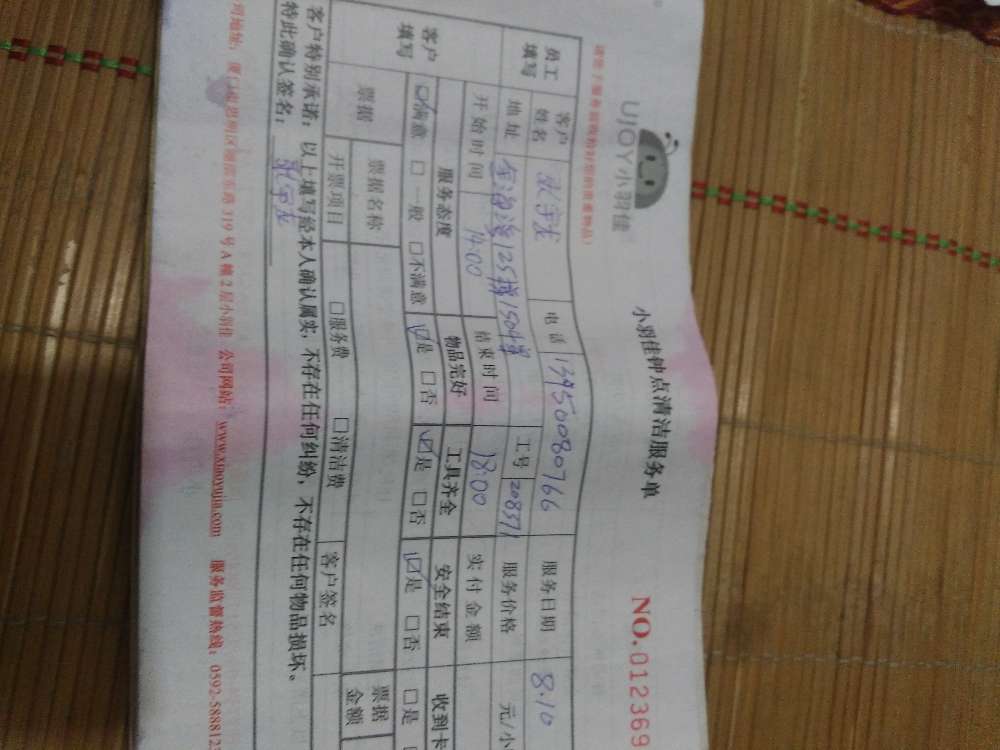 UJOY小羽佳
小羽佳钟点清洁服务单
NO.012369
员工填写
客户姓名
电话 13950080766
服务日期 8.10
地址 金海湾125撞1504单
工号 208371
服务价格
元/小
开始时间 14:00
结束时间 18:00
实付金额
客户填写
服务态度
物品完好
工具齐全
安全结束
收到卡
☑满意 □一般 □不满意
☑是 □否
☑是 □否
☑是 □否
□是
票据
票据名称
客户签名
票据金额
开票项目
□服务费 □清洁费
客户特别承诺：以上填写经本人确认属实，不存在任何纠纷，不存在任何物品损坏。
特此确认签名：
司地址：厦门市思明区湖滨东路319号A幢2层小羽佳 公司网站：www.xiaoyujia.com 服务监督热线：0592-588812